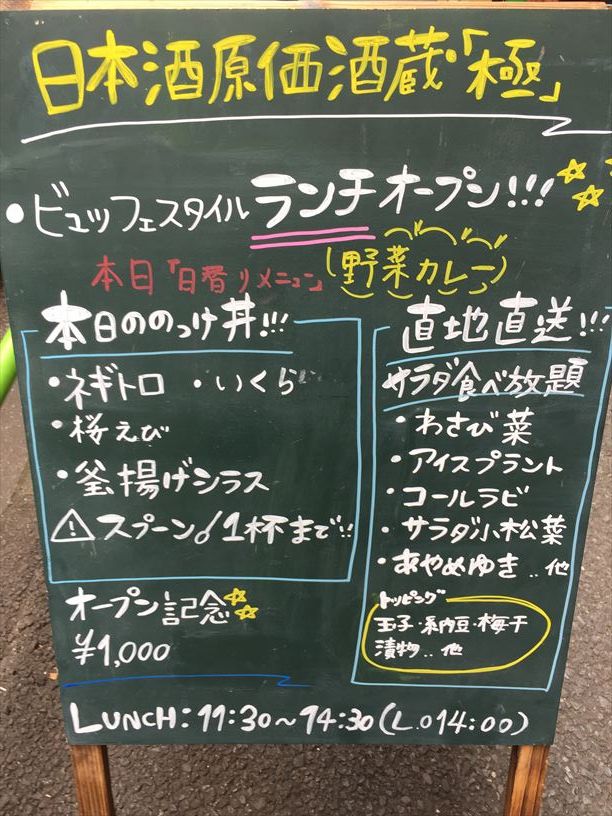 日本酒原価酒蔵「極」
・ビュッフェスタイルランチオープン!!!
本日「日替りメニュー」(野菜カレー)
本日ののっけ丼!!!
・ネギトロ ・いくら
・桜えび
・釜揚げシラス
⚠スプーン1杯まで!!
オープン記念
¥1,000
直地直送!!!
サラダ食べ放題
・わさび菜
・アイスプラント
・コールラビ
・サラダ小松菜
・あやめゆき..他
トッピング
玉子・納豆・梅干
漬物..他
LUNCH:11:30~14:30(L.O14:00)